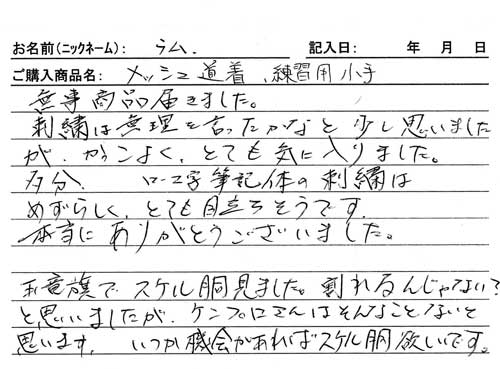 お名前（ニックネーム）： ラム． 記入日： 年 月 日
ご購入商品名： メッシュ道着、練習用小手
無事商品届きました。
刺繍は無理を言ったかなと少し思いました
が、かっこよく、とても気に入りました。
多分、 ローマ字筆記体の刺繍は
めずらしく、とても目立ちそうです。
本当にありがとうございました。
玉竜旗で、スケル胴見ました。割れるんじゃない？
と思いましたが、ケンプロさんはそんなことないと
思います。 いつか機会があればスケル胴欲いです。